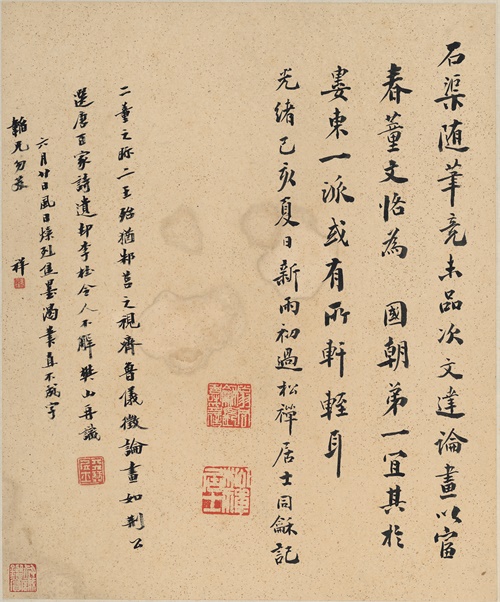 石渠随筆竟未品次文達論畫以富
春董文恪為 國朝第一宜其於
婁東一派或有所軒輊耳
光緒己亥夏日新雨初過松禪居士同龢記
二董之眎二王殆猶邾莒之視齊魯儀徵論畫如荆公
選唐百家詩遺却李杜令人不解樊山再識
六月廿日風日燥烈焦墨渴筆直不成字
韜兄勿笑 祥
松禪居士